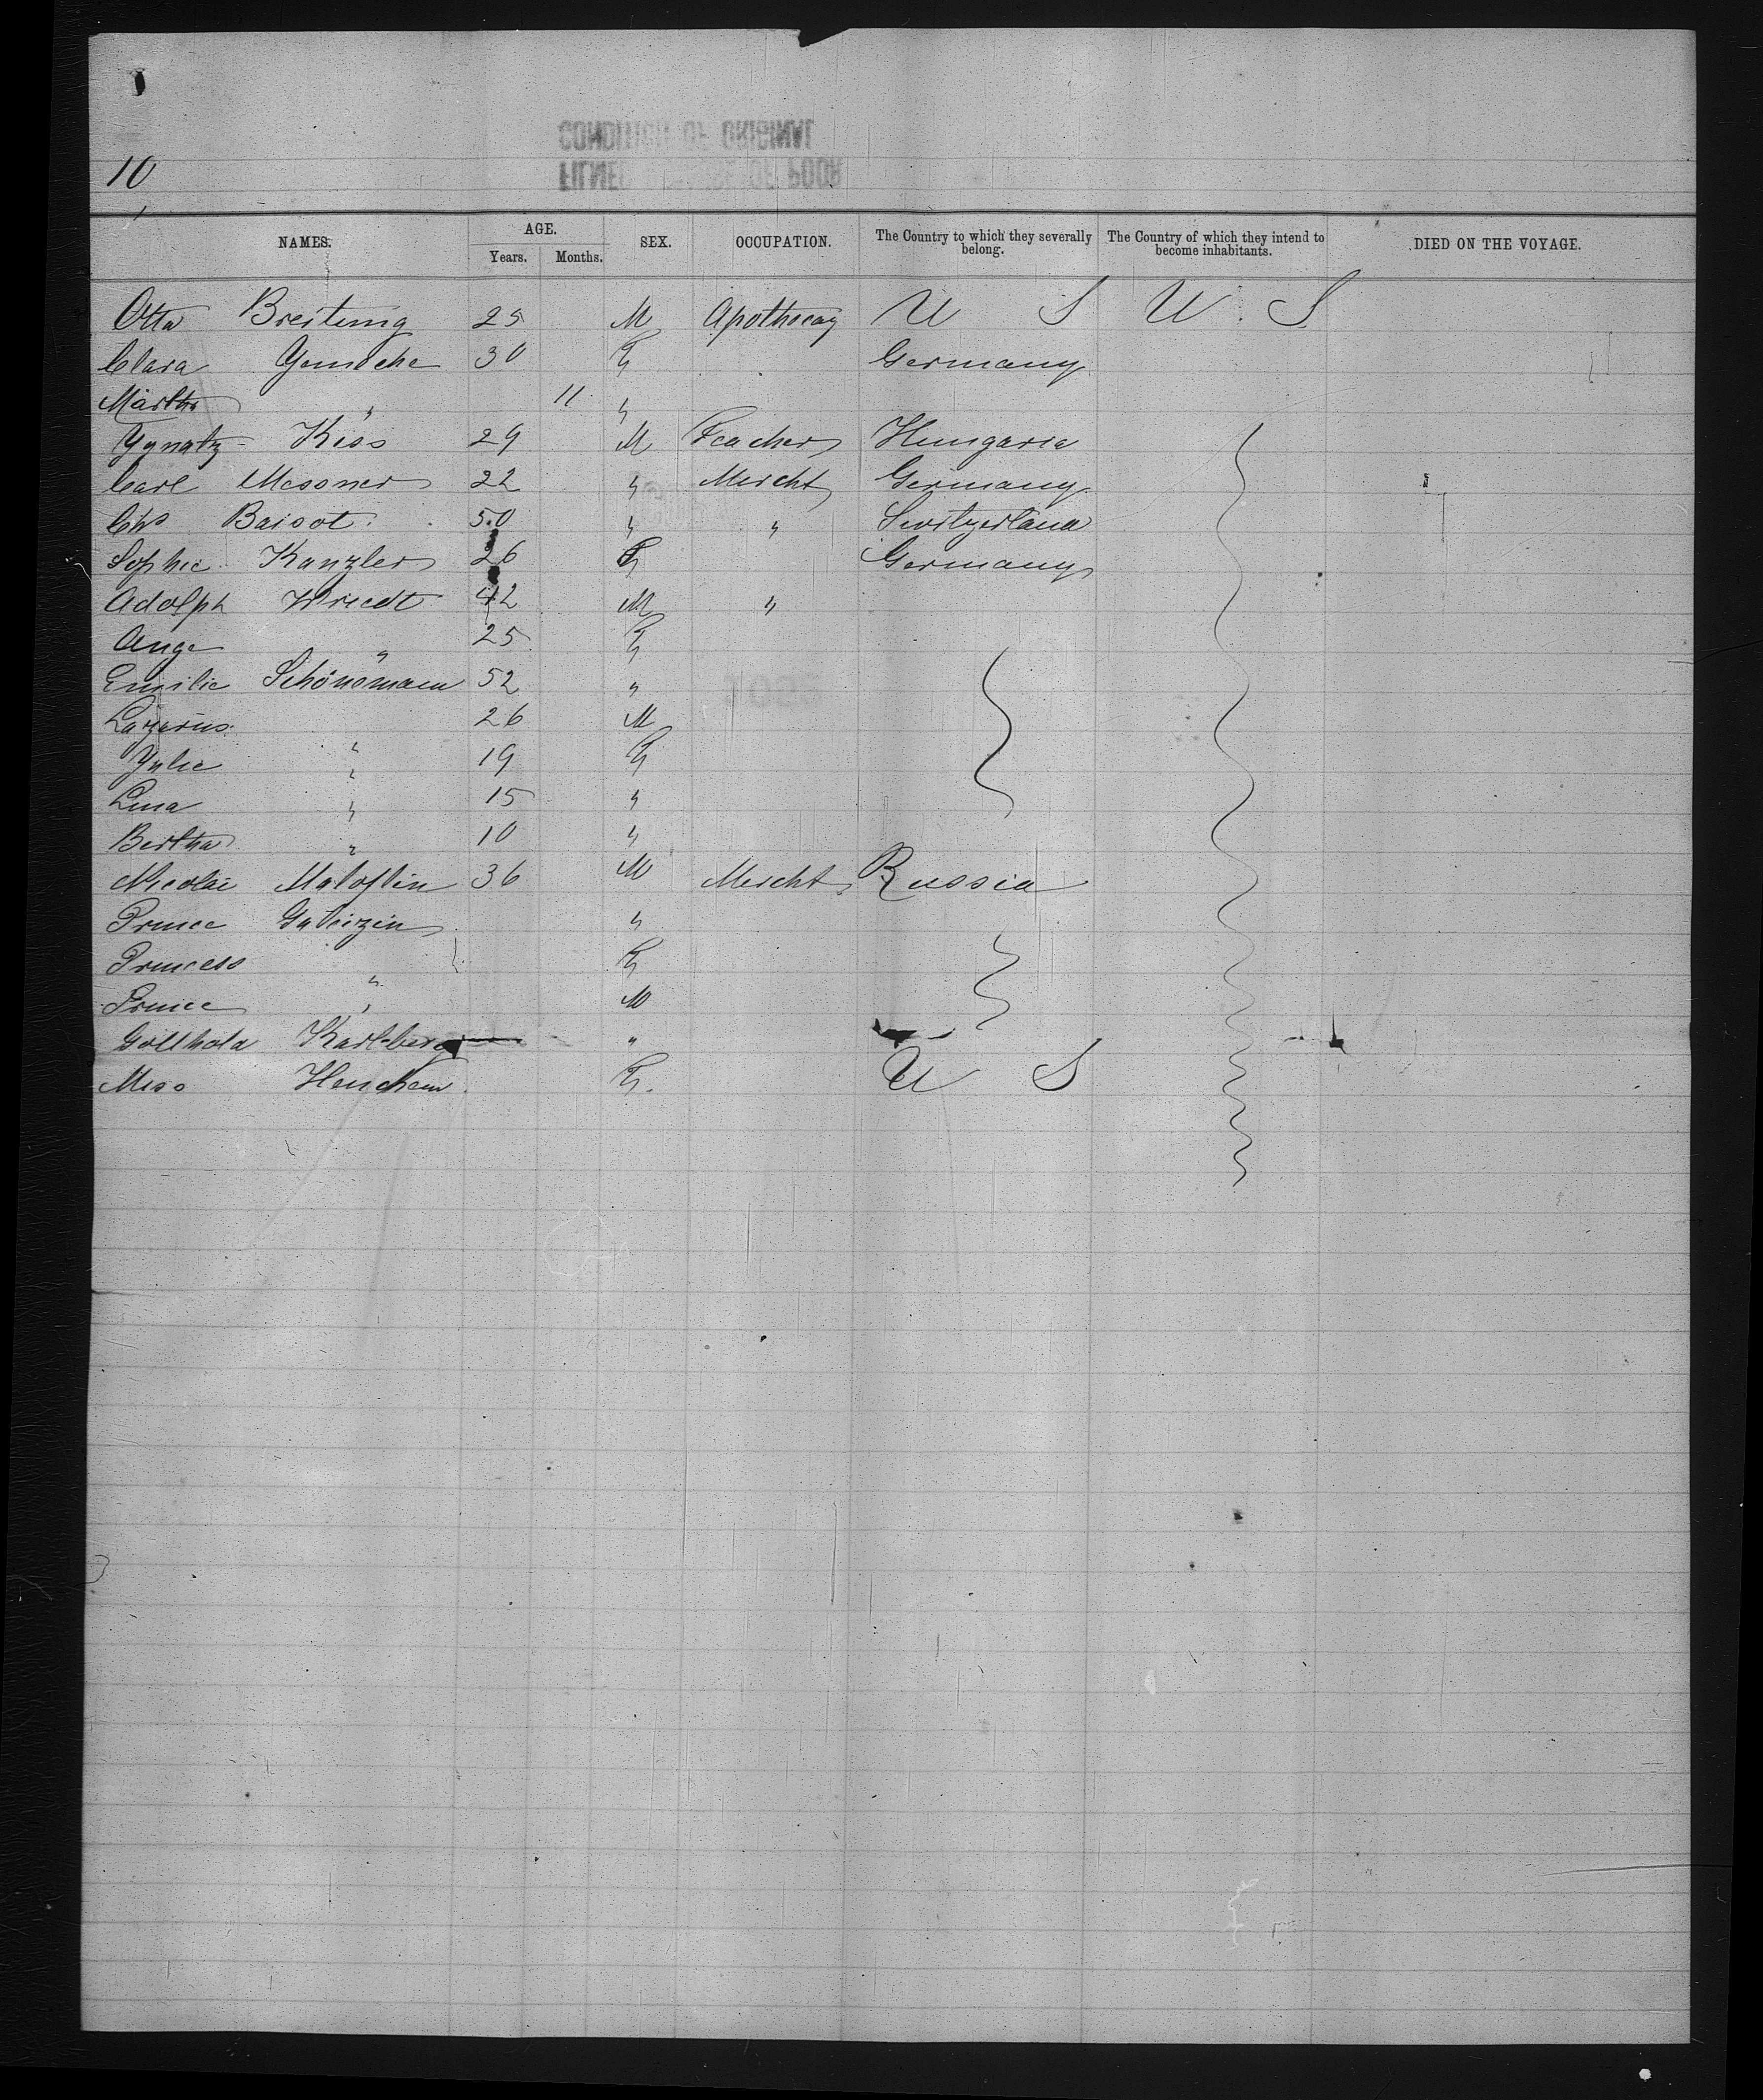 10
NAMES. AGE. Years. Months. SEX. OCCUPATION. The Country to which they severally belong. The Country of which they intend to become inhabitants. DIED ON THE VOYAGE.
Otto Breitung 25 M Apothecay U S U. S
Clara 30 F Germany
Martha " 11 "
Ygnatz Kiss 29 M Teacher Hungaria
Carl Messner 22 " Mercht Germany
Chs Baisot 50 " " Switzerland
Sophie Kanzler 26 F Germany
Adolph Wriedt 42 M "
Ange " 25 F
Emilie Schönemann 52 "
Lazarus " 26 M
Julie " 19 F
Lina " 15 "
Bertha " 10 "
Nicolai 36 M Mercht Russia
Prince Galeizin "
Princess " F
Prince " M
Gotthold Karlberg "
Miss F. U S